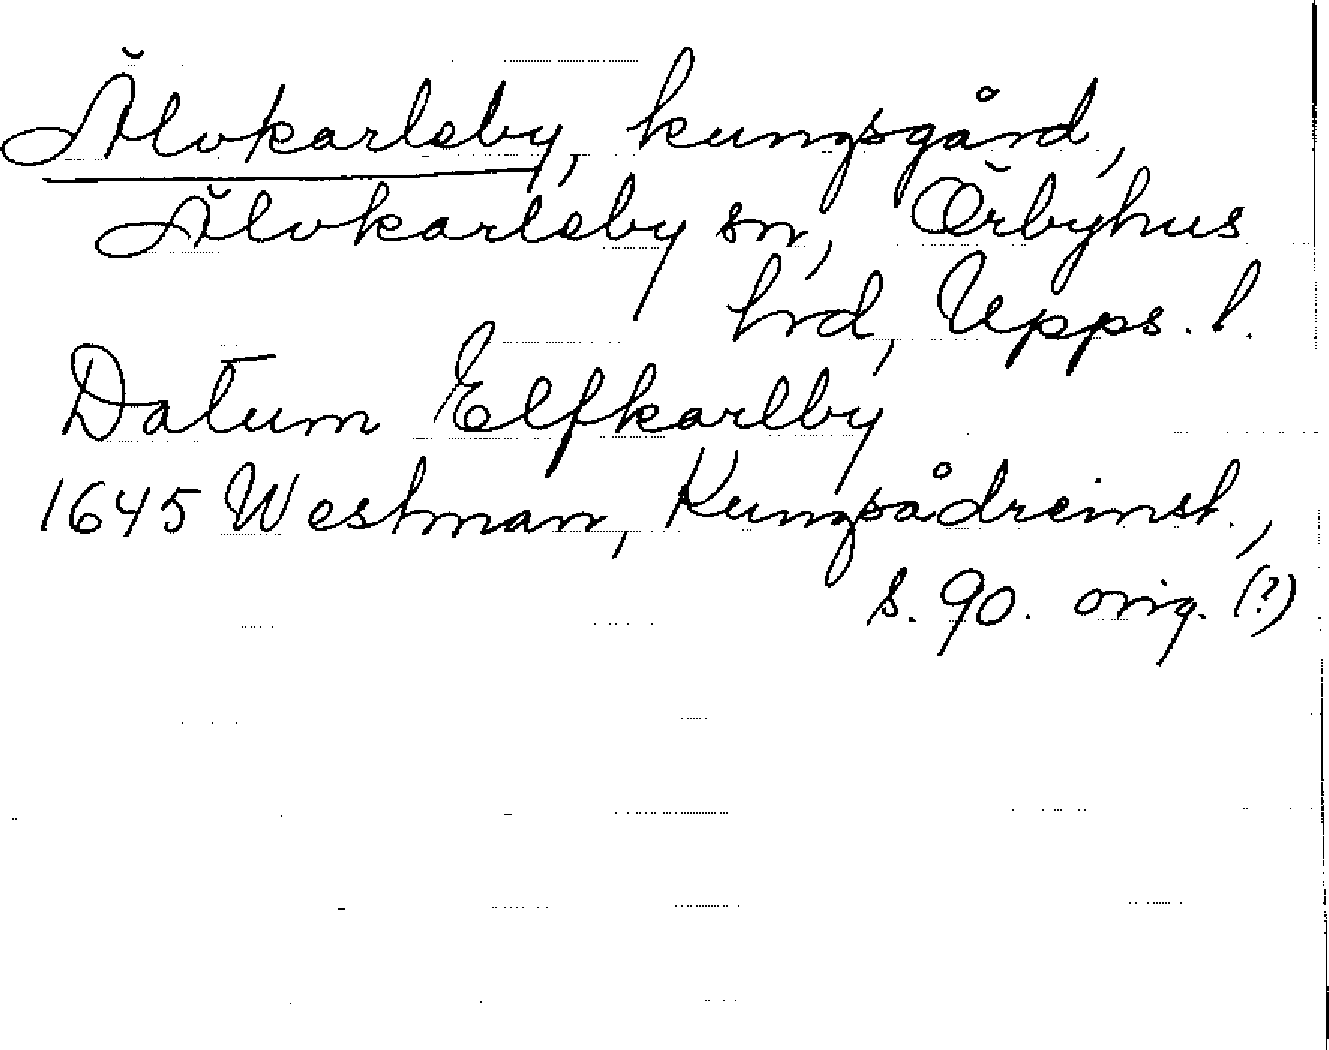 Älvkarleby, kungsgård,
Älvkarleby sn, Örbyhus
hrd, Upps. l.
Datum Elfkarlby
1645 Westman, Kungsådreinst.,
s. 90. orig. (?)